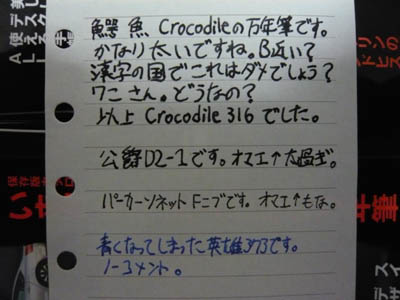 鰐魚 Crocodileの万年筆です。
かなり太いですね。B近い?
漢字の国でこれはダメでしょう?
ワニさん。どうなの?
以上 Crocodile 316 でした。
公爵D2-1です。オマエ↑太過ぎ。
パーカーソネット Fニブです。オマエ↑もな。
青くなってしまった英雄373です。
ノーコメント。